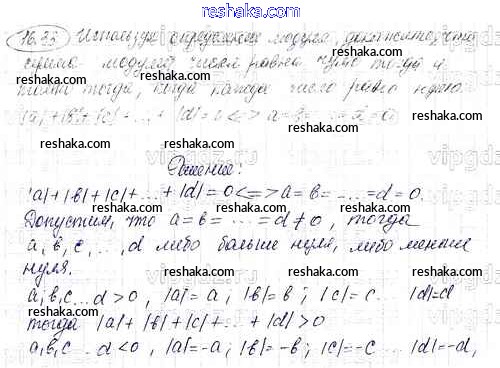 reshaka.com
16.33 Используя определение модуля, докажите, что
сумма модулей чисел равна нулю тогда и
только тогда, когда каждое число равно нулю.
reshaka.com
|a|+|b|+|c|+...+|d|=0<=>a=b=...=d=0
reshaka.com
Решение:
|a|+|b|+|c|+...+|d|=0<=>a=b=....=d=0.
reshaka.com
Допустим, что a=b=...=d≠0, тогда
a,b,c,...,d либо больше нуля, либо меньше
нуля.
reshaka.com reshaka.com
a,b,c...d>0, |a|=a; |b|=b; |c|=c... |d|=d
тогда |a|+|b|+|c|+...+|d|>0
reshaka.com reshaka.com
a,b,c..d<0, |a|=-a; |b|=-b; |c|=-c |d|=-d,
reshaka.com